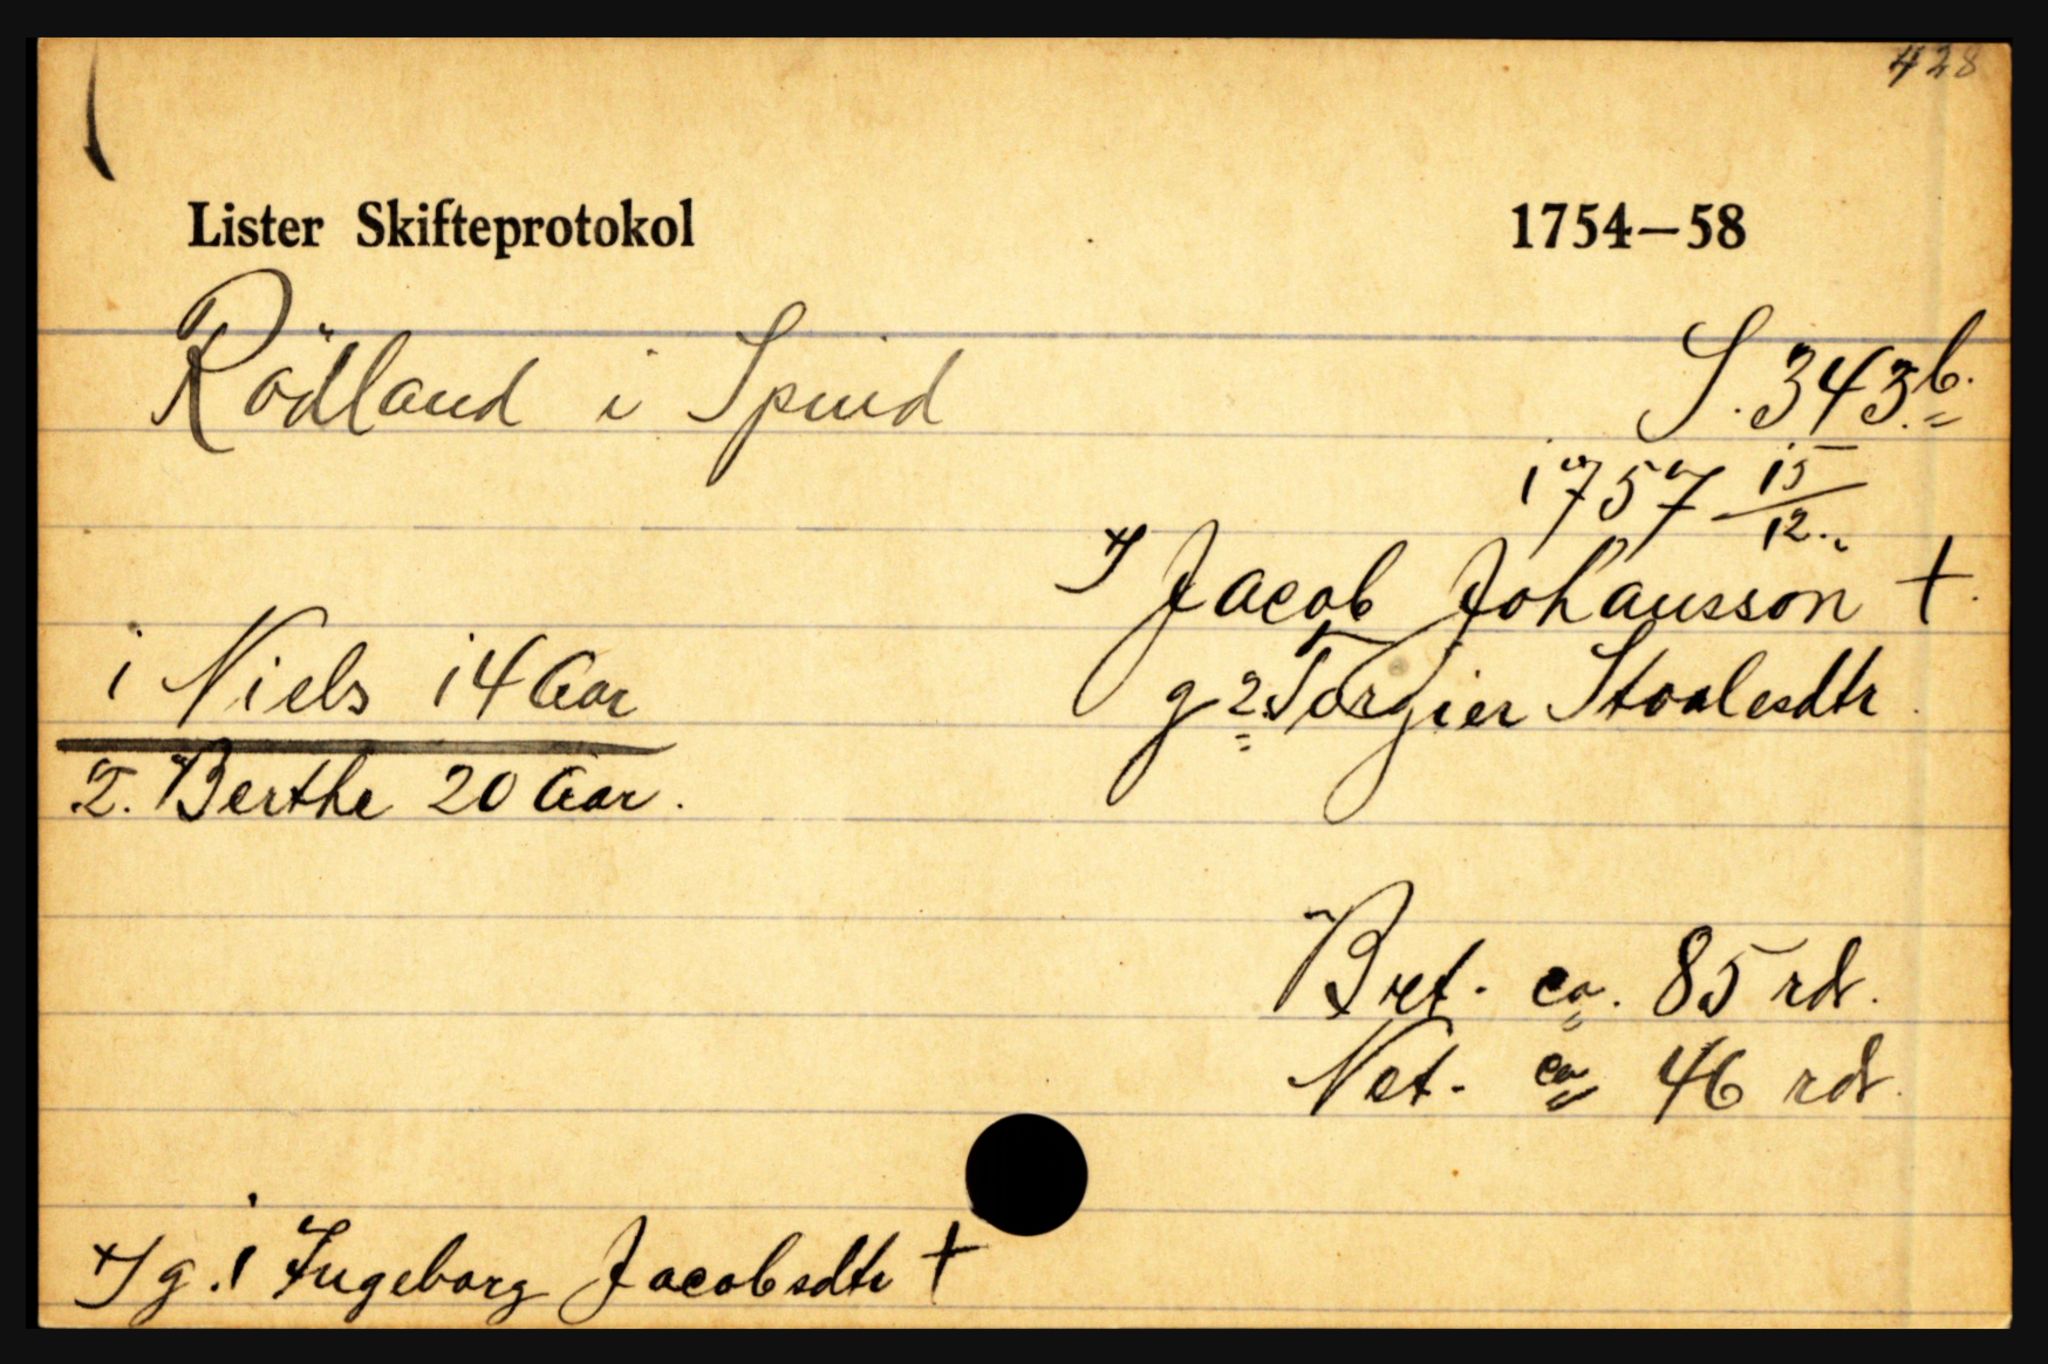 428
Lister Skifteprotokol 1754—58
Rödland i Spind S. 343b.
1757 15/12
Jacob Johansson +
g 2. Torgier Stoalesdtr.
1 Niels 14 Aar
2. Berthe 20 Aar.
Bret. ca. 85 rdr.
Net. ca 46 rdr.
g. 1 Ingeborg Jacobsdtr +